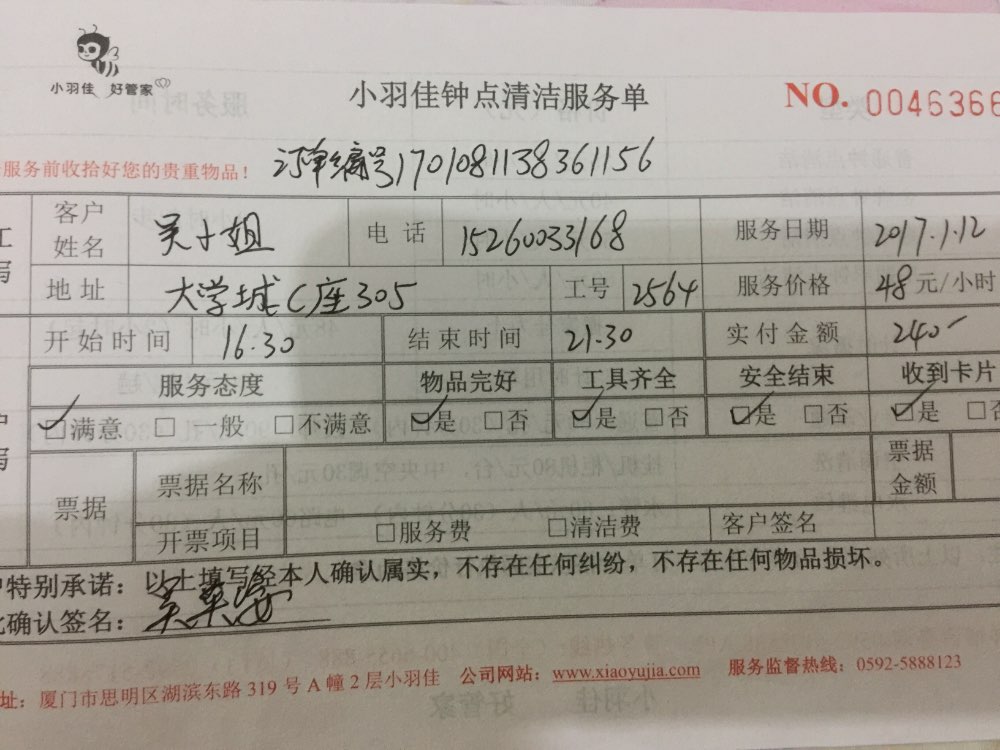 小羽佳 好管家
小羽佳钟点清洁服务单
NO. 0046366
服务前收拾好您的贵重物品！ 订单编号1701081138361156
客户姓名 吴小姐 电话 15260033168 服务日期 2017.1.12
地址 大学城C座305 工号 2564 服务价格 48元/小时
开始时间 16.30 结束时间 21.30 实付金额 240-
服务态度 物品完好 工具齐全 安全结束 收到卡片
☑满意 □一般 □不满意 ☑是 □否 ☑是 □否 ☑是 □否 ☑是 □否
票据 票据名称 票据金额
开票项目 □服务费 □清洁费 客户签名
特别承诺：以上填写经本人确认属实，不存在任何纠纷，不存在任何物品损坏。
确认签名：
址：厦门市思明区湖滨东路319号A幢2层小羽佳 公司网站：www.xiaoyujia.com 服务监督热线：0592-5888123